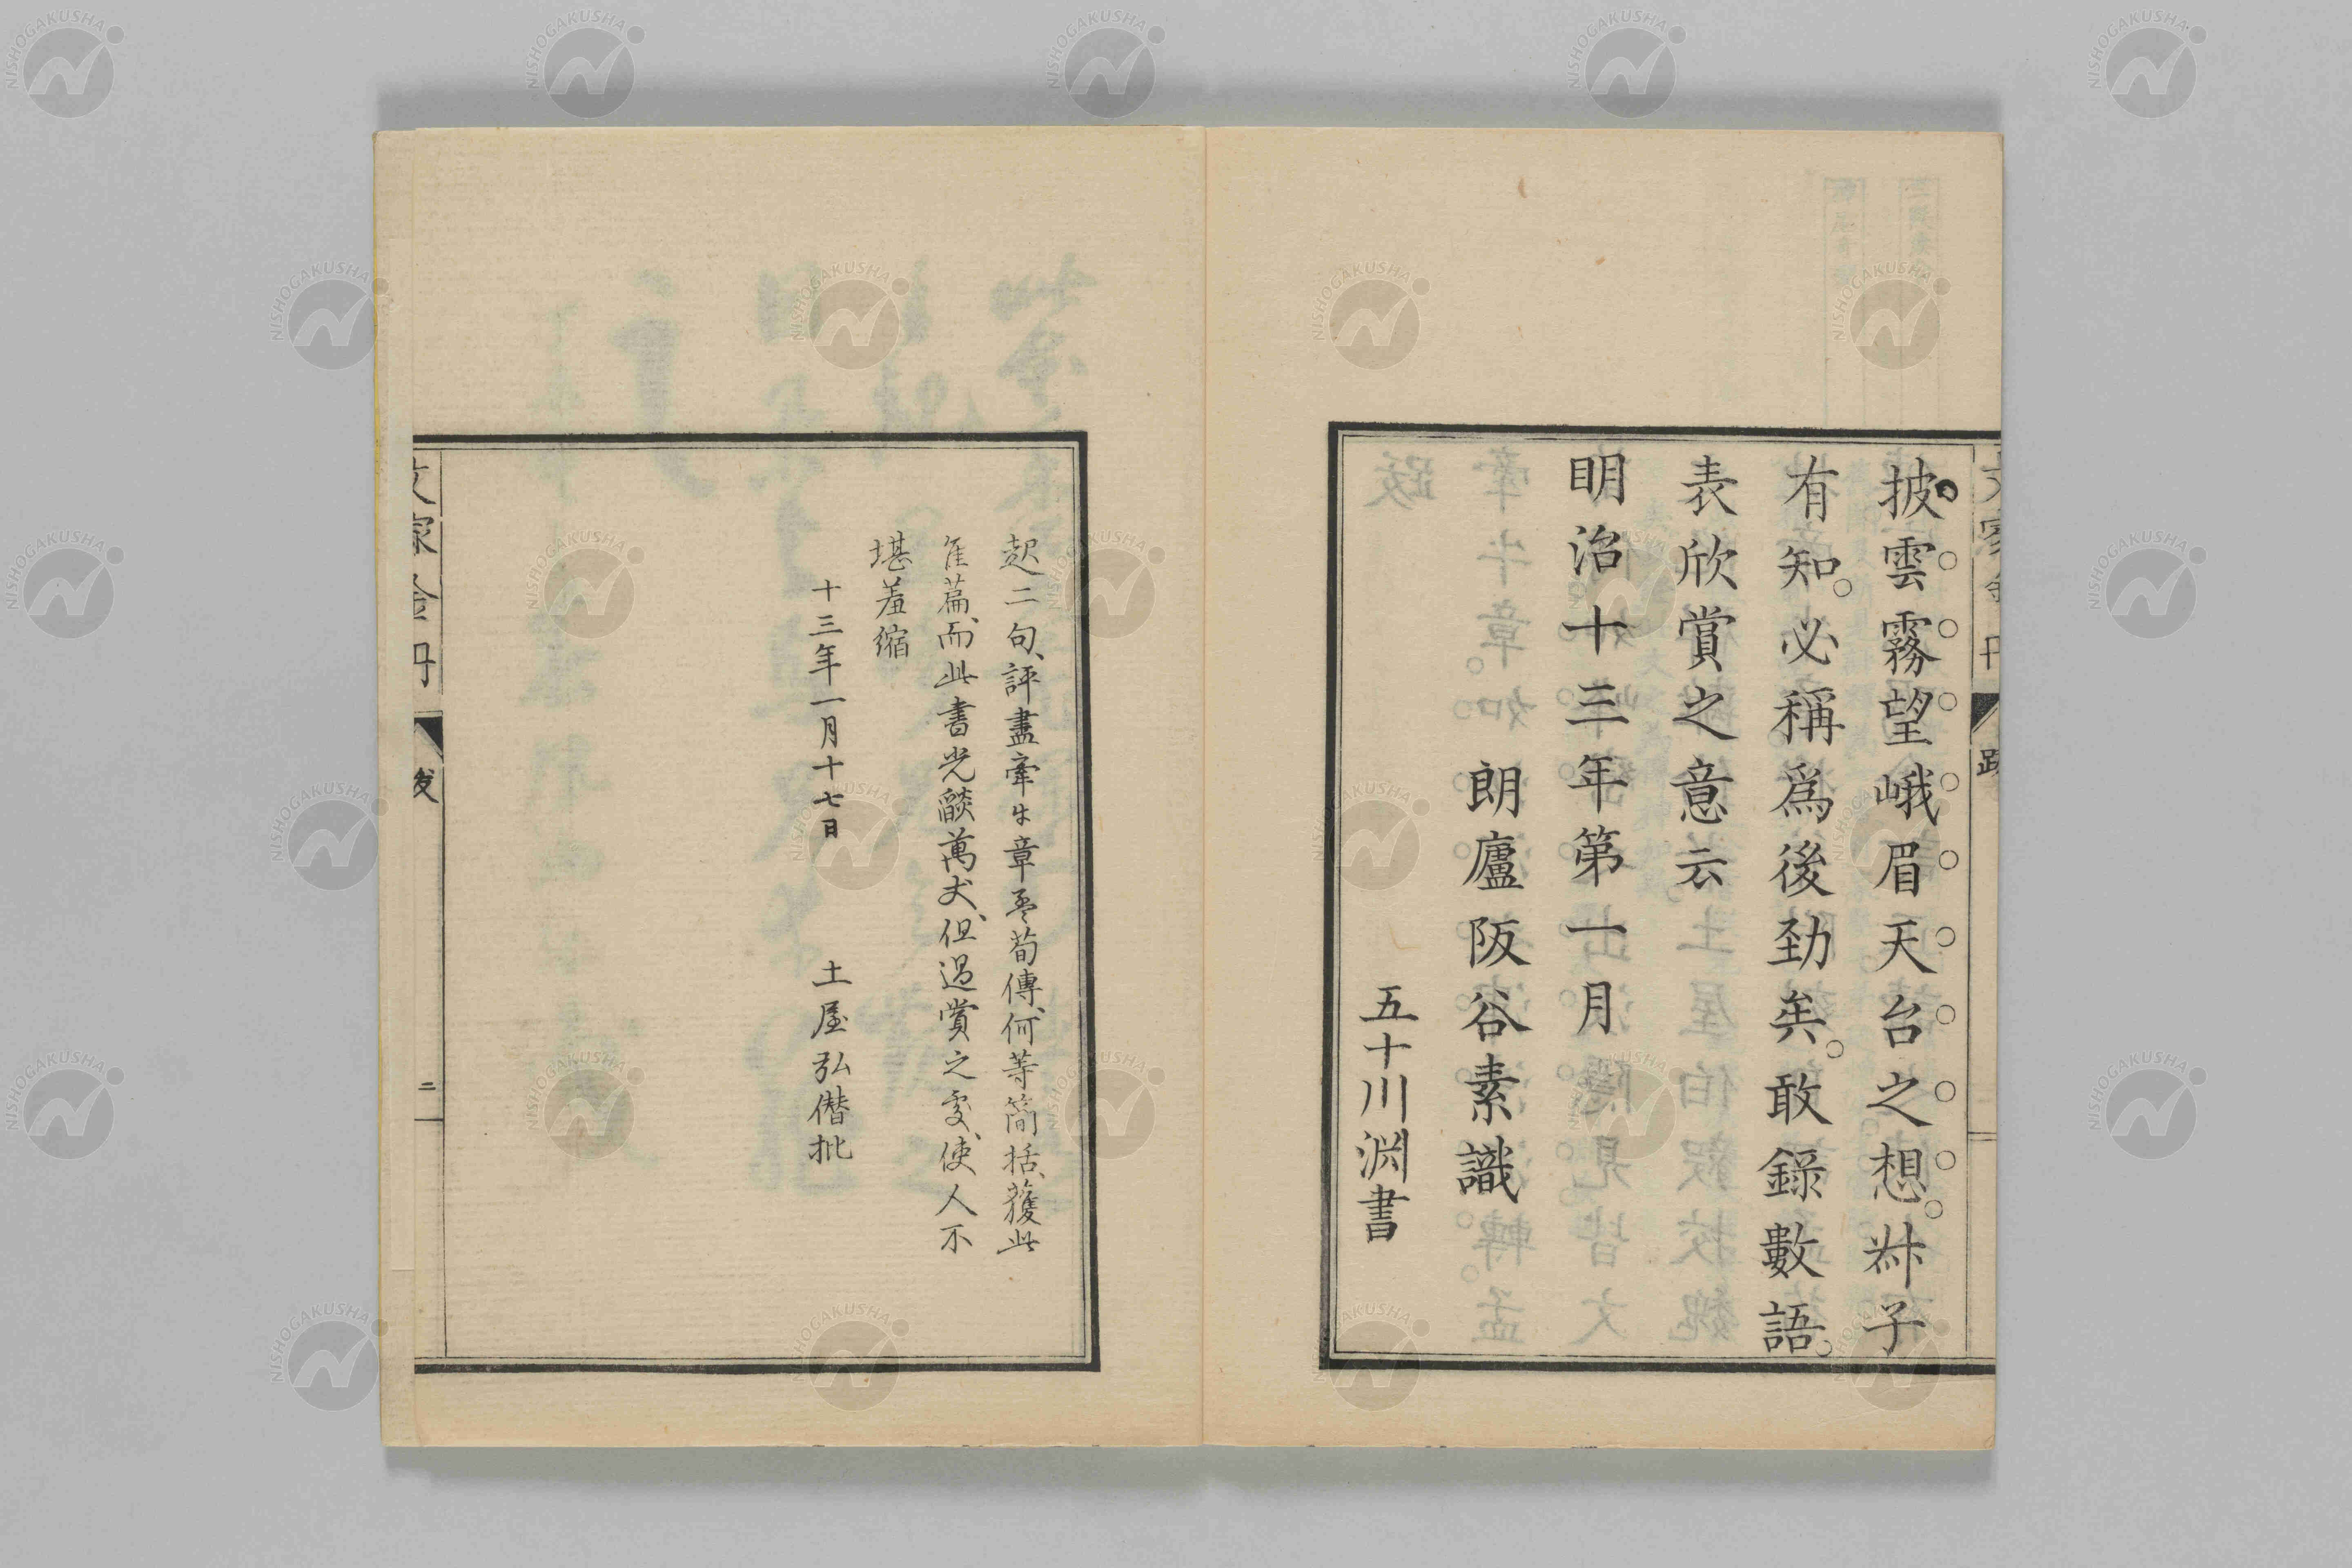 披雲霧望峨眉天台之想。桝子
有知。必稱爲後勁矣。敢錄數語。
表欣賞之意云
明治十三年第一月
朗廬阪谷素識
五十川淵書
起二句、評盡牽牛章孟荀傳、何等簡括、獲此
隹篇、而此書光燄萬丈、但過賞之處、使人不
堪羞縮
十三年一月十七日
土屋弘僭批
後
二
NISHOGAKUSHA